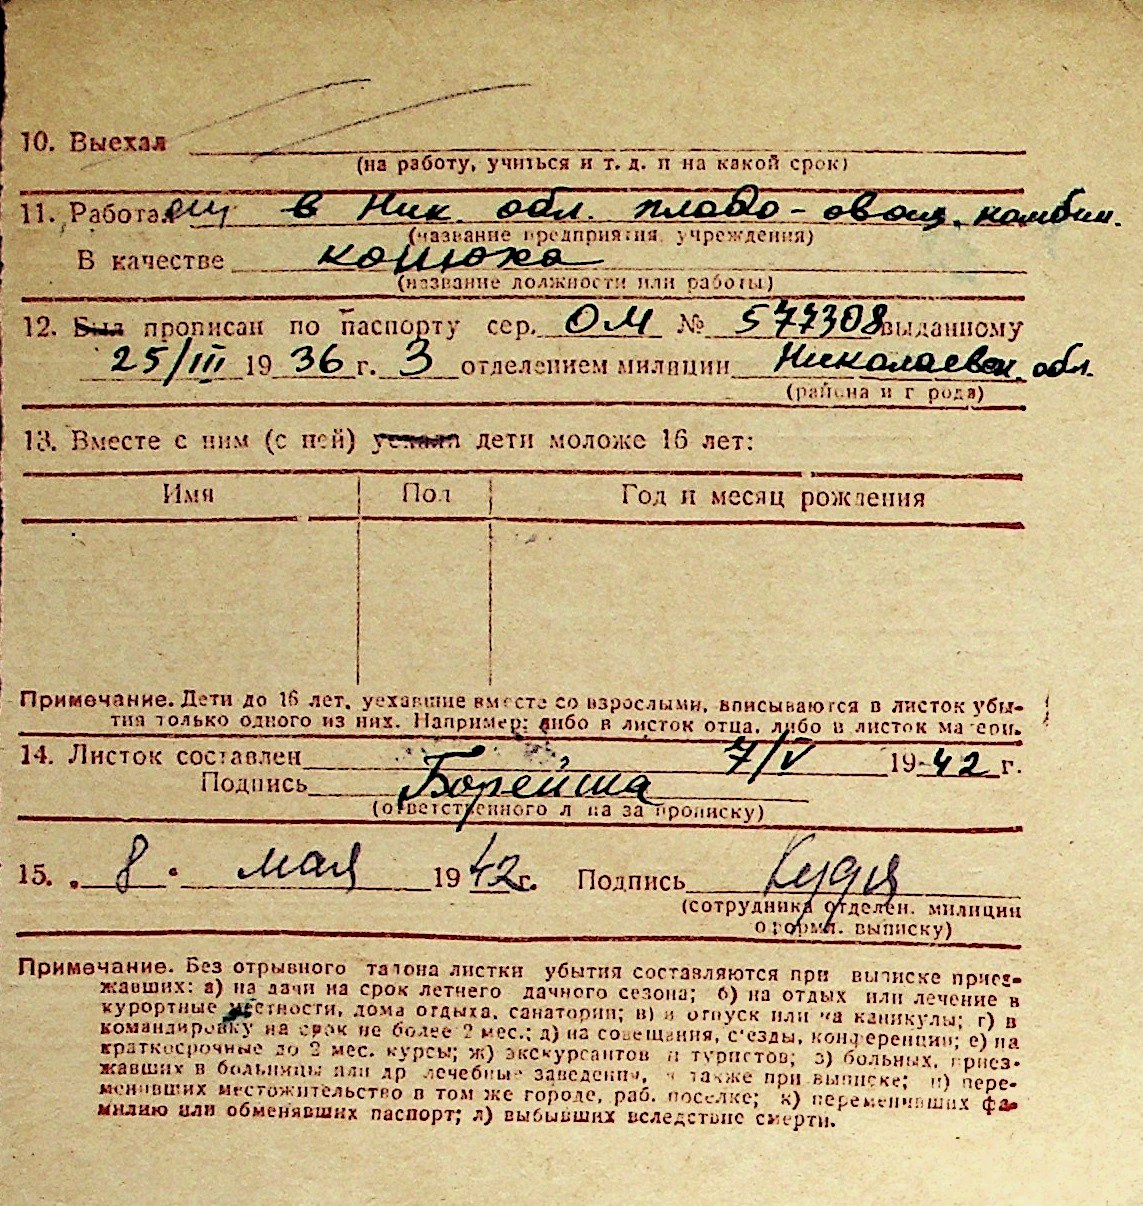 10. Выехал
(на работу, учиться и т. д. и на какой срок)
11. Работающ в Ник. обл. плодо-овощ. комбин.
(название предприятия, учреждения)
В качестве конюха
(название должности или работы)
12. Был прописан по паспорту сер. ОМ № 577308 выданному
25/III 1936 г. 3 отделением милиции Николаевск. обл.
(района и города)
13. Вместе с ним (с ней) уехали дети моложе 16 лет:
Имя Пол Год и месяц рождения
Примечание. Дети до 16 лет, уехавшие вместе со взрослыми, вписываются в листок убы-
тия только одного из них. Например: либо в листок отца, либо в листок матери.
14. Листок составлен 7/V 1942 г.
Подпись Борейша
(ответственного лица за прописку)
15. 8 мая 1942 г. Подпись
(сотрудника отделен. милиции
оформл. выписку)
Примечание. Без отрывного талона листки убытия составляются при выписке приез-
жавших: а) на дачи на срок летнего дачного сезона; б) на отдых или лечение в
курортные местности, дома отдыха, санатории; в) в отпуск или на каникулы; г) в
командировку на срок не более 2 мес.; д) на совещания, с'езды, конференции; е) на
краткосрочные до 2 мес. курсы; ж) экскурсантов и туристов; з) больных, приез-
жавших в больницы или др лечебные заведения, а также при выписке; и) пере-
менивших местожительство в том же городе, раб. поселке; к) переменивших фа-
милию или обменявших паспорт; л) выбывших вследствие смерти.